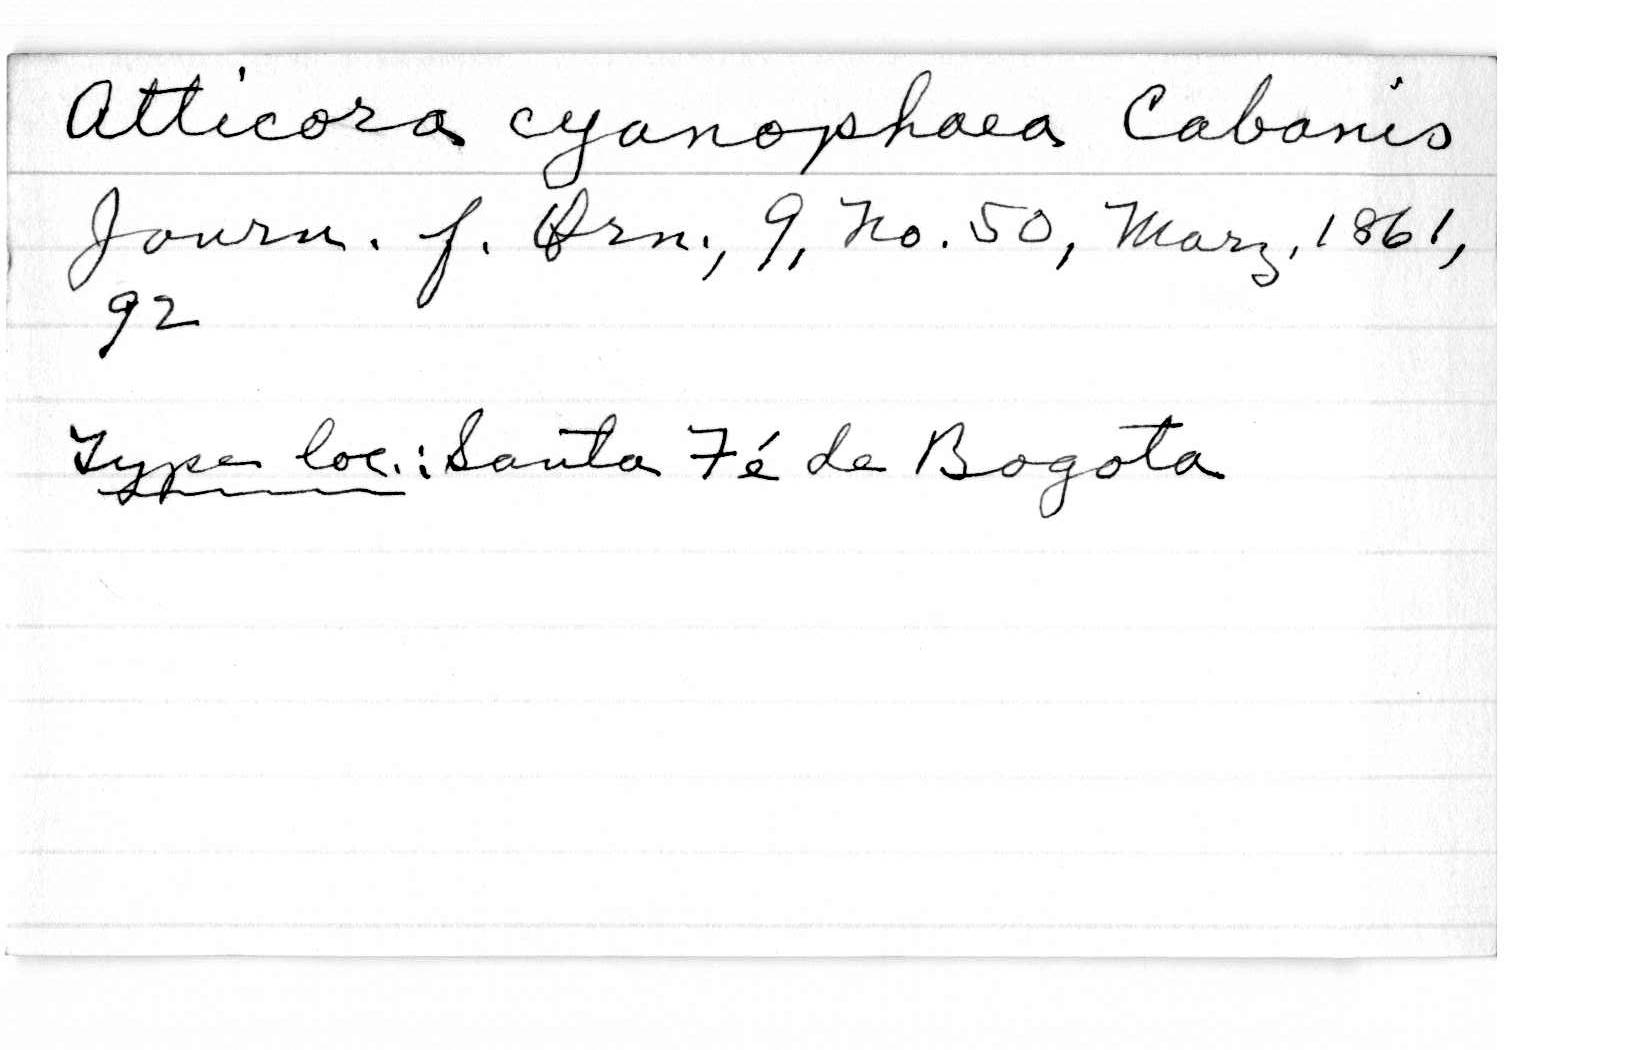 Atticora cyanophaea Cabanis
Journ. f. Orn., 9, No. 50, Marz, 1861,
92
Type loc.: Santa Fé de Bogota